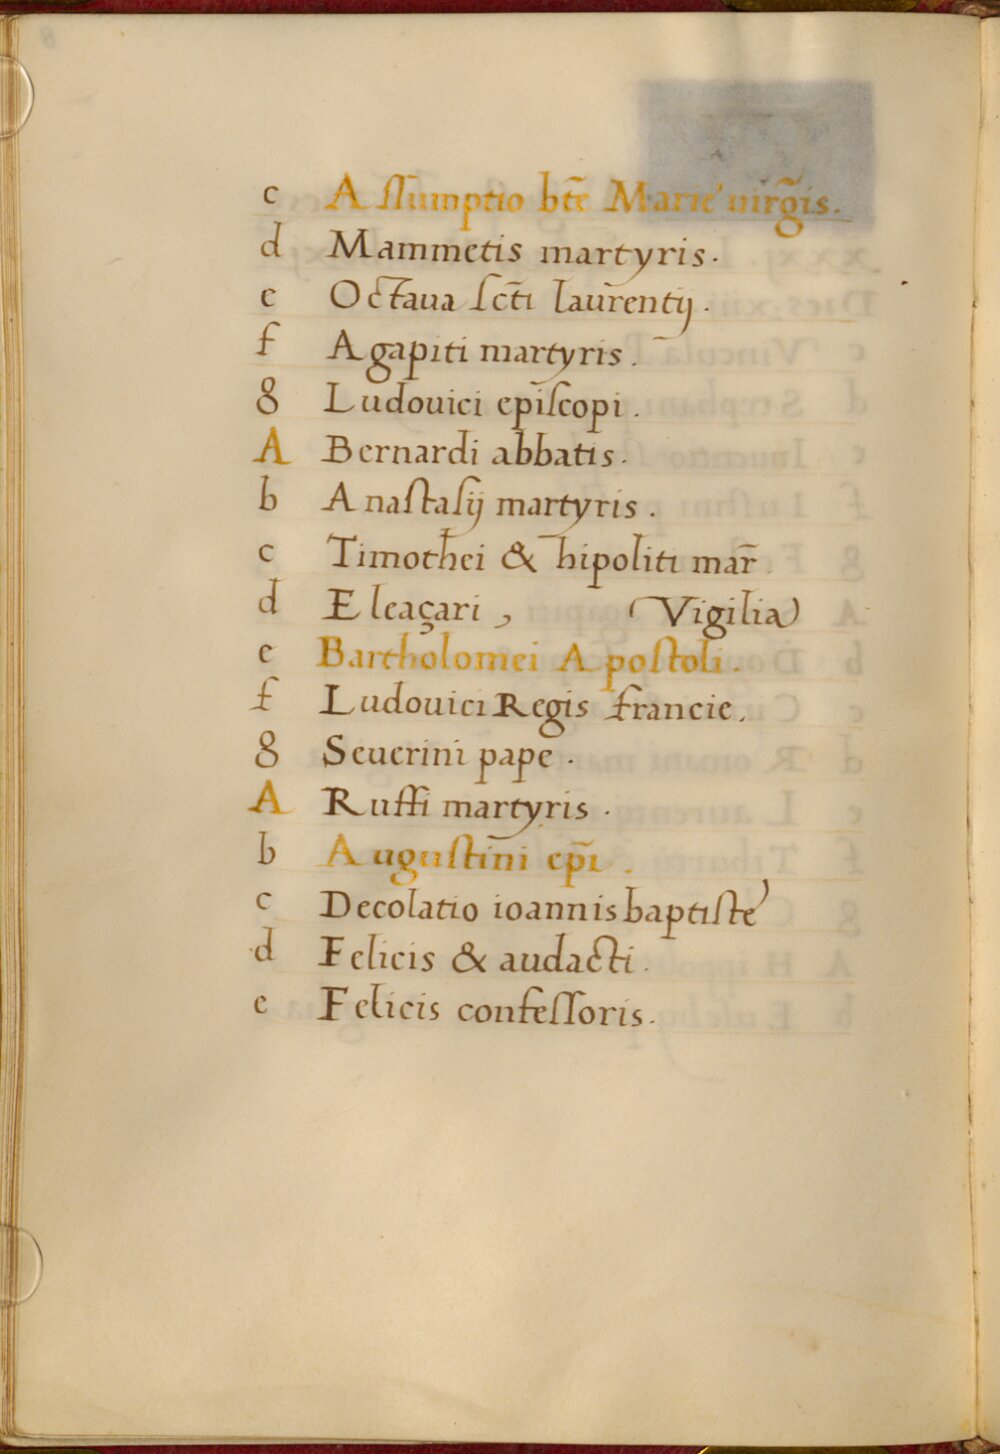 c Assumptio btē Marie virg̃is.
d Mammetis martyris.
e Octaua scti laurentij.
f Agapiti martyris.
g Ludouici episcopi.
A Bernardi abbatis.
b Anastasij martyris.
c Timothei & hipoliti mar̃.
d Eleaçari, Vigilia
e Bartholomei Apostoli.
f Ludouici Regis francie.
g Seuerini pape.
A Ruffi martyris.
b Augustini epi.
c Decolatio ioannis baptiste
d Felicis & audacti.
e Felicis confessoris.